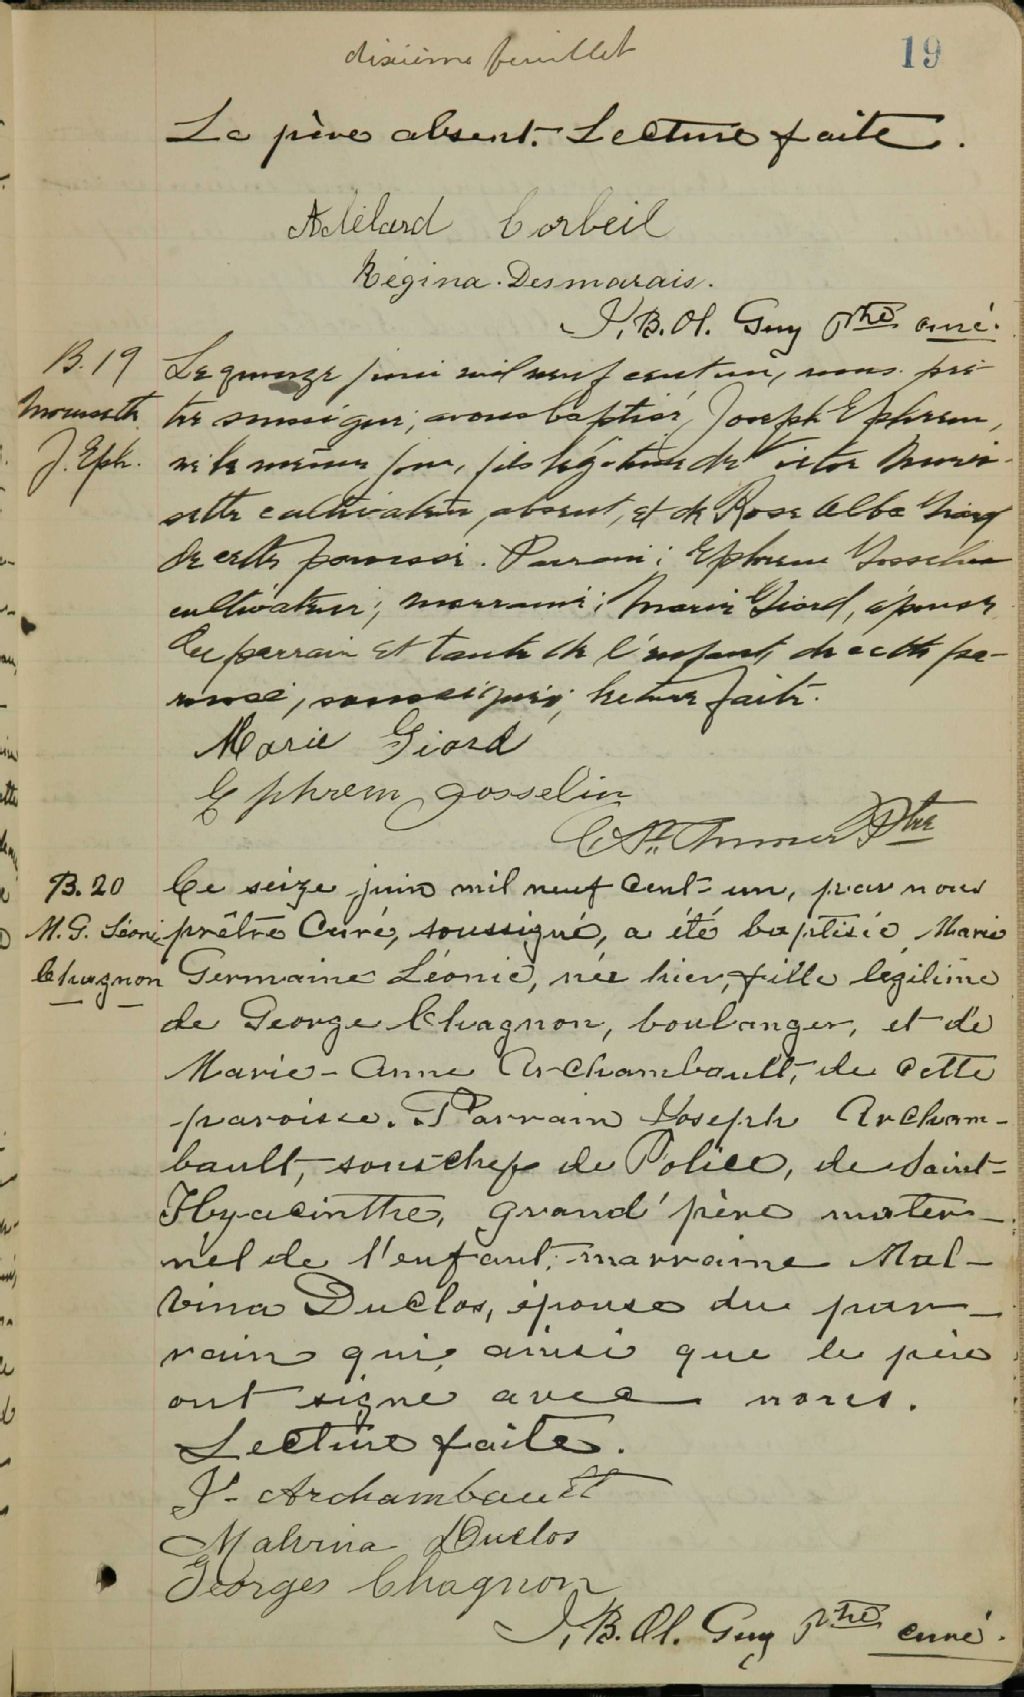 dixième feuillet
19
Le père absent. Lecture faite.
Adélard Corbeil
Régina Desmarais.
J. B. Ol. Guy Ptre curé.
B. 19
J. Eph.
Le quinze juin mil neuf cent un, nous prê-
tre soussigné, avons baptisé, Joseph Ephrem,
né le même jour, fils légitime de Victor Moris-
sette cultivateur, absent, et de Rose Alba Giard
de cette paroisse. Parrain; Ephrem Gosselin
cultivateur; marraine; Marie Giard, épouse
du parrain et tante de l'enfant, de cette pa-
roisse, soussignés; lecture faite.
Marie Giard
Ephrem Gosselin
Ptre
B. 20
M. G. Léonie
Chagnon
Ce seize juin mil neuf cent-un, par nous
prêtre Curé, soussigné, a été baptisée Marie
Germaine Léonie, née hier, fille légitime
de George Chagnon, boulanger, et de
Marie-Anne Archambault, de cette
paroisse. Parrain Joseph Archam-
bault, sous chef de Police, de Saint-
Hyacinthe, grand'père mater-
nel de l'enfant; marraine Mal-
vina Duclos, épouse du par-
rain qui, ainsi que le père
ont signé avec nous.
Lecture faite.
J. Archambault
Malvina Duclos
Georges Chagnon
J. B. Ol. Guy Ptre curé.